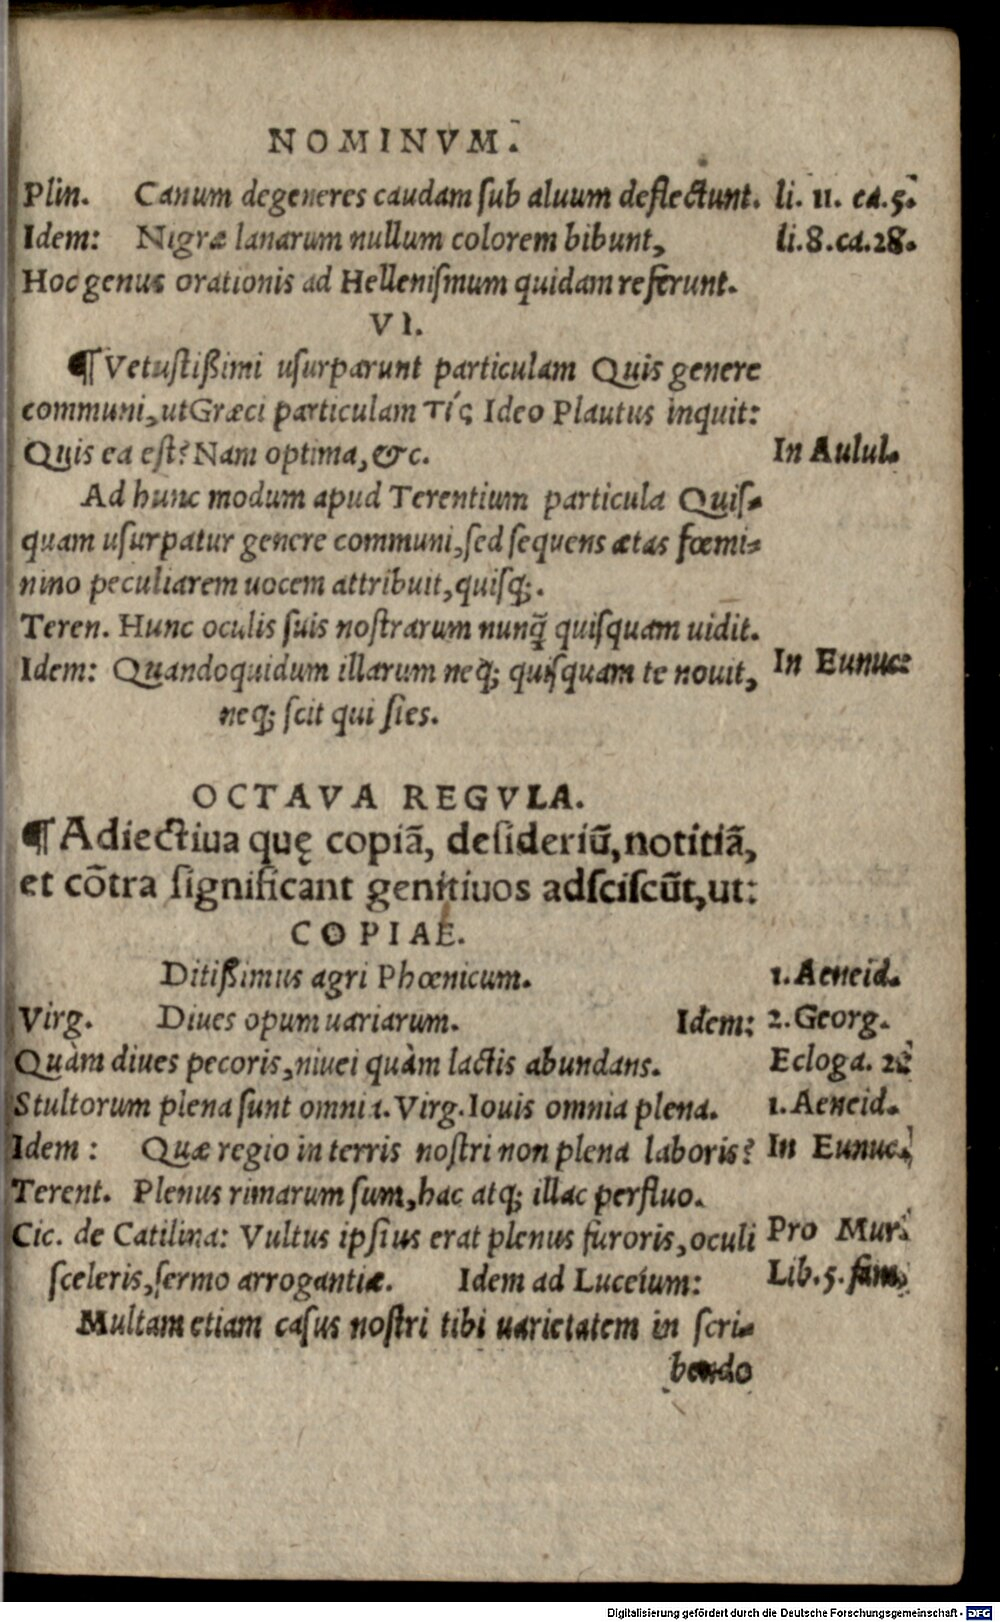 NOMINVM.
Plin. Canum degeneres caudam ſub aluum deflectunt. li. 11. ca. 5.
Idem: Nigræ lanarum nullum colorem bibunt, li. 8. ca. 28.
Hoc genus orationis ad Helleniſmum quidam referunt.
VI.
¶ Vetuſtißimi uſurparunt particulam Quis genere
communi, ut Græci particulam τίς Ideo Plautus inquit:
Quis ea eſt? Nam optima, &c. In Aulul.
Ad hunc modum apud Terentium particula Quiſ-
quam uſurpatur genere communi, ſed ſequens ætas fœmi-
nino peculiarem uocem attribuit, quiſq;.
Teren. Hunc oculis ſuis noſtrarum nunq̃ quiſquam uidit.
Idem: Quandoquidum illarum neq; quiſquam te nouit, In Eunuc:
neq; ſcit qui ſies.
OCTAVA REGVLA.
¶ Adiectiua quę copiã, deſideriũ, notitiã,
et cõtra ſignificant genitiuos adſciſcũt, ut:
COPIAE.
Ditißimus agri Phœnicum. 1. Aeneid.
Virg. Diues opum uariarum. Idem: 2. Georg.
Quàm diues pecoris, niuei quàm lactis abundans. Ecloga. 2.
Stultorum plena ſunt omnia. Virg. Iouis omnia plena. 1. Aeneid.
Idem: Quæ regio in terris noſtri non plena laboris? In Eunuc.
Terent. Plenus rimarum ſum, hac atq; illac perfluo.
Cic. de Catilina: Vultus ipſius erat plenus furoris, oculi Pro Mur.
ſceleris, ſermo arrogantiæ. Idem ad Luceium: Lib. 5. fam.
Multam etiam caſus noſtri tibi uarietatem in ſcri-
bendo
Digitalisierung gefördert durch die Deutsche Forschungsgemeinschaft - DFG